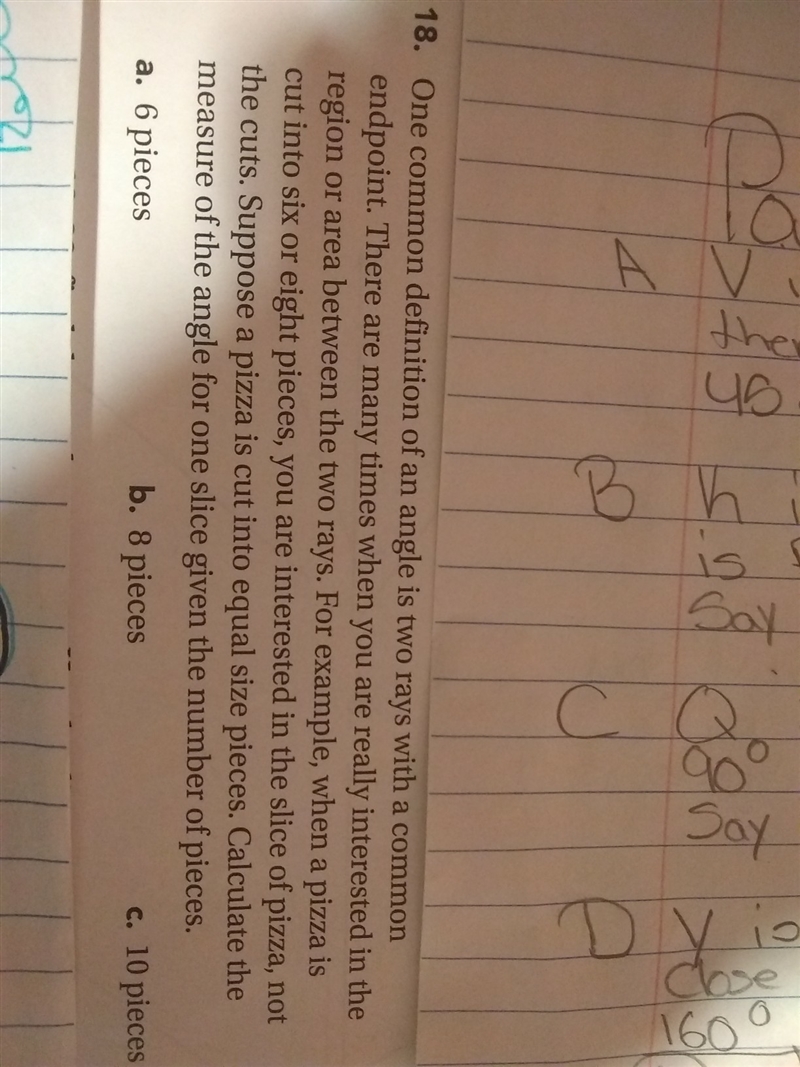 18. One common definition of an angle is two rays with a common
endpoint. There are many times when you are really interested in the
region or area between the two rays. For example, when a pizza is
cut into six or eight pieces, you are interested in the slice of pizza, not
the cuts. Suppose a pizza is cut into equal size pieces. Calculate the
measure of the angle for one slice given the number of pieces.
a. 6 pieces b. 8 pieces c. 10 pieces
is
close
say
say
160°
A B C D